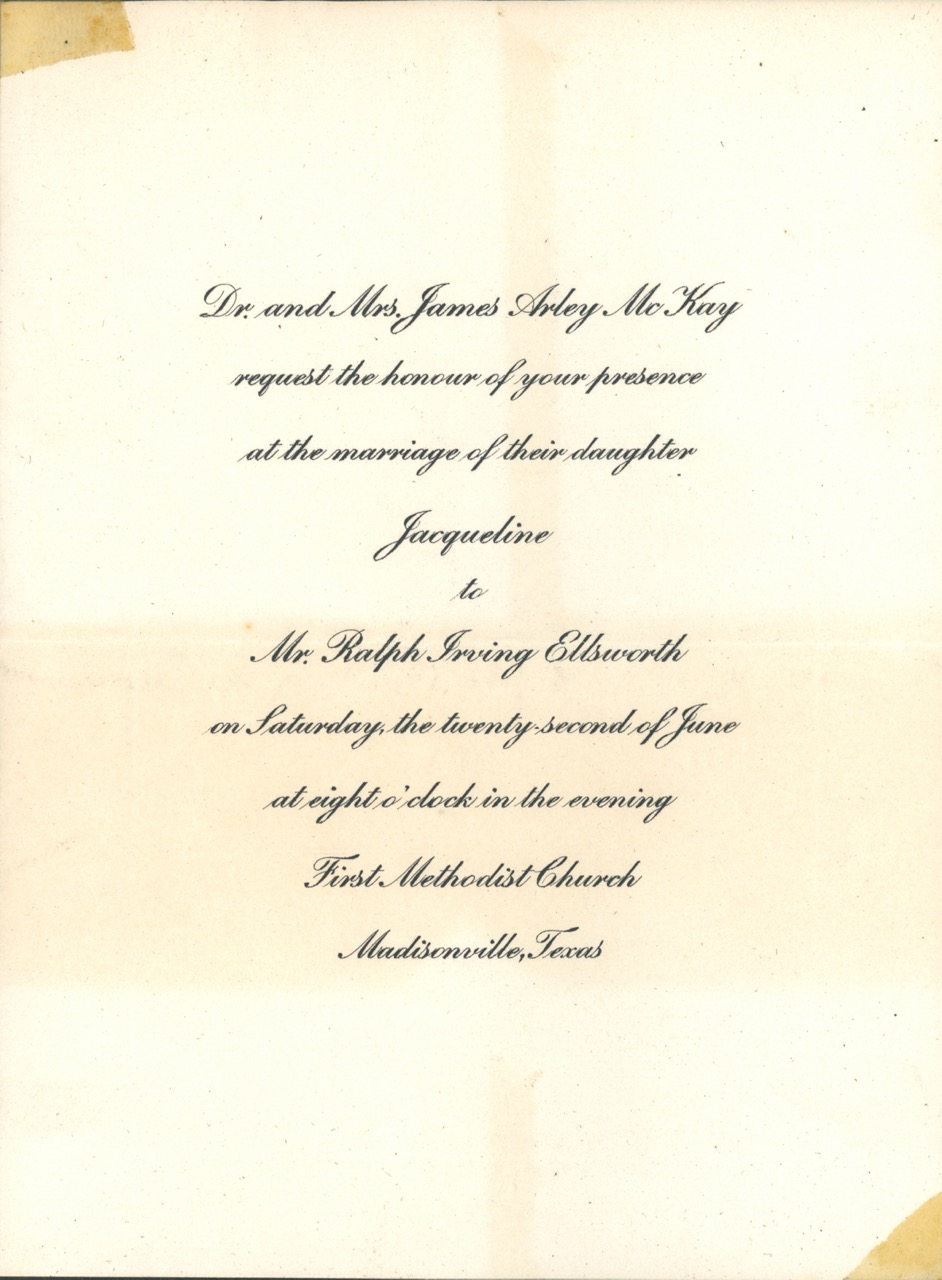 Dr. and Mrs. James Arley Mc Kay
request the honour of your presence
at the marriage of their daughter
Jacqueline
to
Mr. Ralph Irving Ellsworth
on Saturday, the twenty-second of June
at eight o'clock in the evening
First Methodist Church
Madisonville, Texas